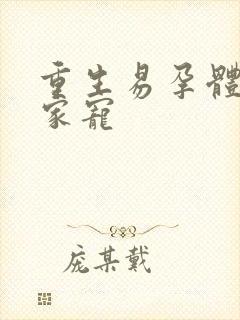 重生易孕體
家寵
庞某戴